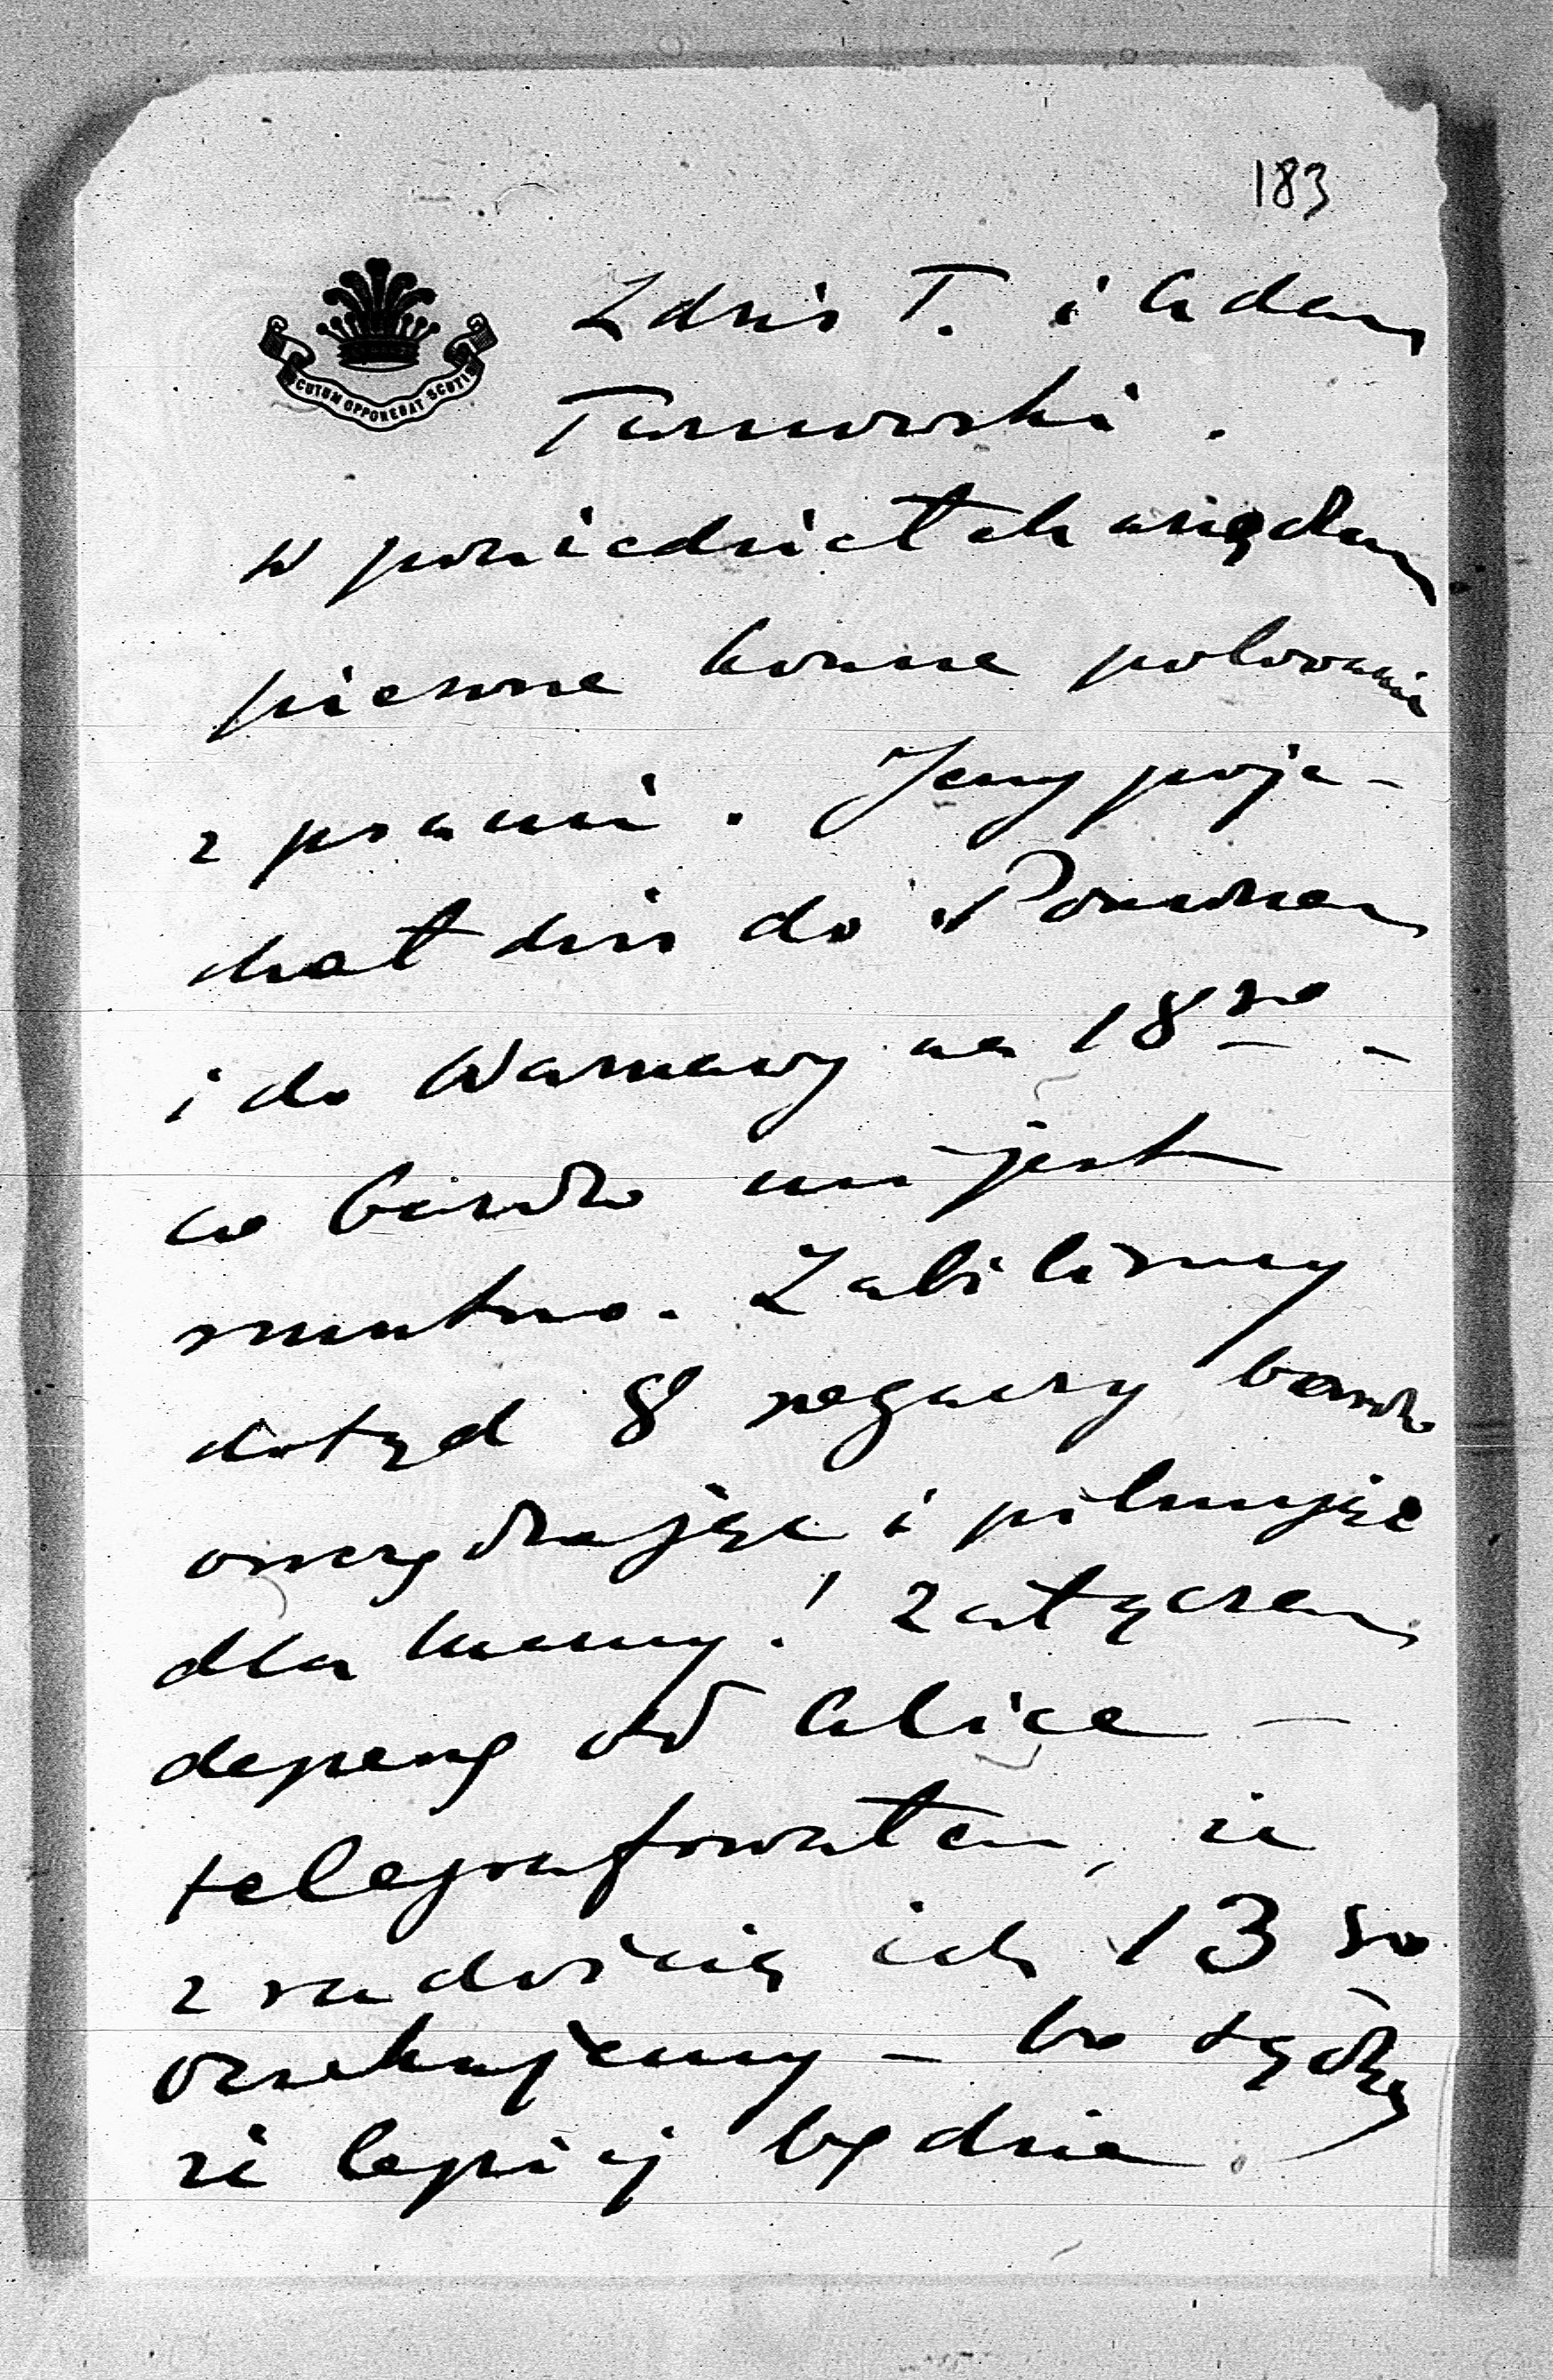 183
SCUTUM OPPONEBAT SCUTIS
Zdziś T. i Adam
Tarnowski.
w poniedziałek urządzam
pierwsze konne polowanie
z psami. Jerzy poje-
chał dziś do Poznania
i do Warszawy na 18go -
co bardzo mi jest
smutno. Zabiliśmy
dotąd 8 rogaczy bardzo
oszczędzając i pilnując
dla Mamy! Załączam
depeszę od Alice —
telegrafowałem, że
z radością ich 13go
oczekujemy — bo sądzę
że lepiej będzie.